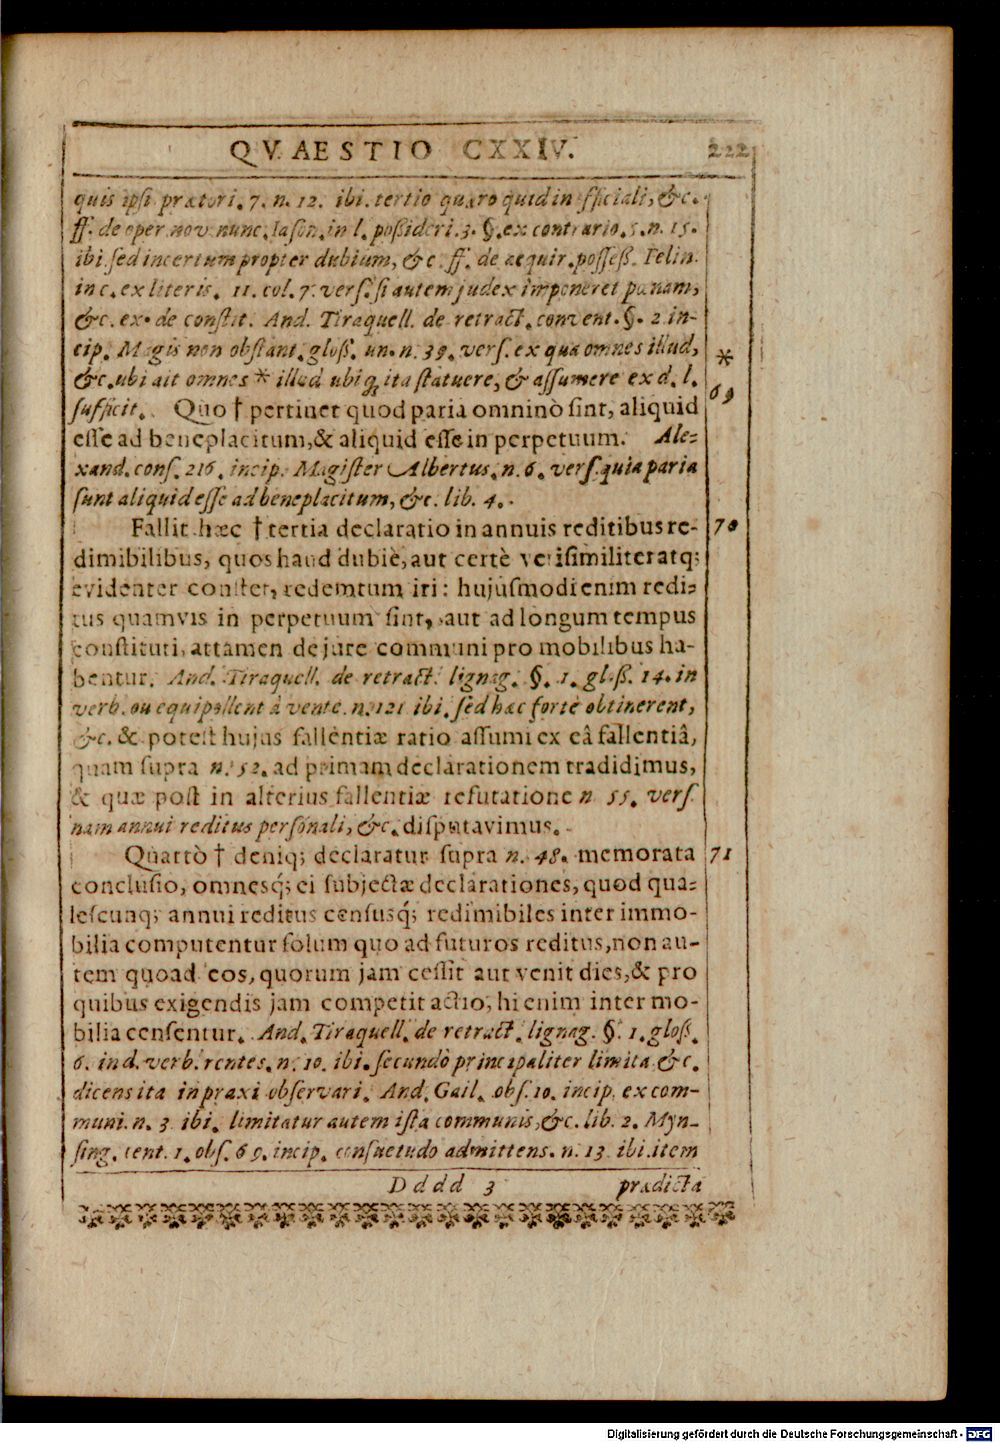 QVAESTIO CXXIV. 222
quis ipsi prætori. 7. n. 12. ibi. tertio quæro quid in officiali, &c.
ff. de oper. nov. nunc. Iason. in l. possideri. 3. §. ex contrario. 5. n. 15.
ibi sed incertum propter dubium, &c. ff. de acquir. posseß. Felin.
in c. ex literis. 11. col. 7. vers. si autem judex imponeret pœnam,
&c. ex. de constit. And. Tiraquell. de retract. convent. §. 2 in-
cip. Magis non obstant. gloß. un. n. 39. vers. ex qua omnes illud,
&c. ubi ait omnes * illud ubiq; ita statuere, & assumere ex d. l. *
sufficit. Quo † pertinet quod paria omninò sint, aliquid 69
esse ad beneplacitum, & aliquid esse in perpetuum. Ale-
xand. cons. 216. incip. Magister Albertus. n. 6. vers. quia paria
sunt aliquid esse ad beneplacitum, &c. lib. 4.
Fallit hæc † tertia declaratio in annuis reditibus re- 70
dimibilibus, quos haud dubiè, aut certè verisimiliter atq;
evidenter constet, redemtum iri: hujusmodi enim redi-
tus quamvis in perpetuum sint, aut ad longum tempus
constituti, attamen de jure communi pro mobilibus ha-
bentur. And. Tiraquell. de retract. lignag. §. 1. gloß. 14. in
verb. ou equipollent à vente. n. 121 ibi. sed hæc fortè obtinerent,
&c. & potest hujus fallentiæ ratio assumi ex eâ fallentiâ,
quam supra n. 52. ad primam declarationem tradidimus,
& quæ post in alterius fallentiæ refutatione n 55. vers.
nam annui reditus personali, &c. disputavimus.
Quartò † deniq; declaratur supra n. 48. memorata 71
conclusio, omnesq́; ei subjectæ declarationes, quod qua-
lescunq; annui reditus censusq́; redimibiles inter immo-
bilia computentur solum quo ad futuros reditus, non au-
tem quoad eos, quorum jam cessit aut venit dies, & pro
quibus exigendis jam competit actio, hi enim inter mo-
bilia censentur. And. Tiraquell. de retract. lignag. §. 1. gloß.
6. in d. verb. rentes. n. 10. ibi. secundò principaliter limita &c.
dicens ita in praxi observari. And. Gail. obs. 10. incip. ex com-
muni. n. 3 ibi. limitatur autem ista communis, &c. lib. 2. Myn-
sing. cent. 1. obs. 69. incip. consuetudo admittens. n. 13. ibi. item
Dddd 3 prædicta
Digitalisierung gefördert durch die Deutsche Forschungsgemeinschaft - DFG